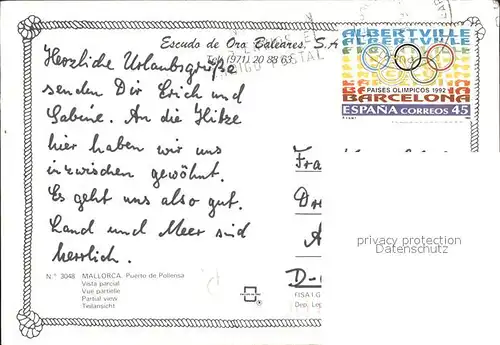 Escudo de Oro Baleares, S.A
Tel. (971) 20 88 63
POSTAL
ALBERTVILLE
PAISES OLIMPICOS 1992
BARCELONA
ESPAÑA CORREOS 45
Herzliche Urlaubsgrüße
senden Dir Erich und
Sabine. An die Hitze
hier haben wir uns
inzwischen gewöhnt.
Es geht uns also gut.
Land und Meer sind
herrlich.
Fra
D-
privacy protection
Datenschutz
N.° 3048 MALLORCA. Puerto de Pollensa
Vista parcial
Vue partielle
Partial view
Teilansicht
FISA I.G
Dep. Leg